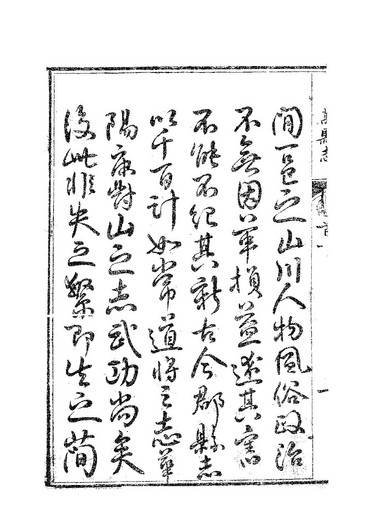 縣志
間一邑之山川人物風俗政治
不無因革損益述其舊
不能不紀其新古今郡縣志
以千百計如常道將之志華
陽康對山之志武功尚矣
後此非失之繁即失之簡